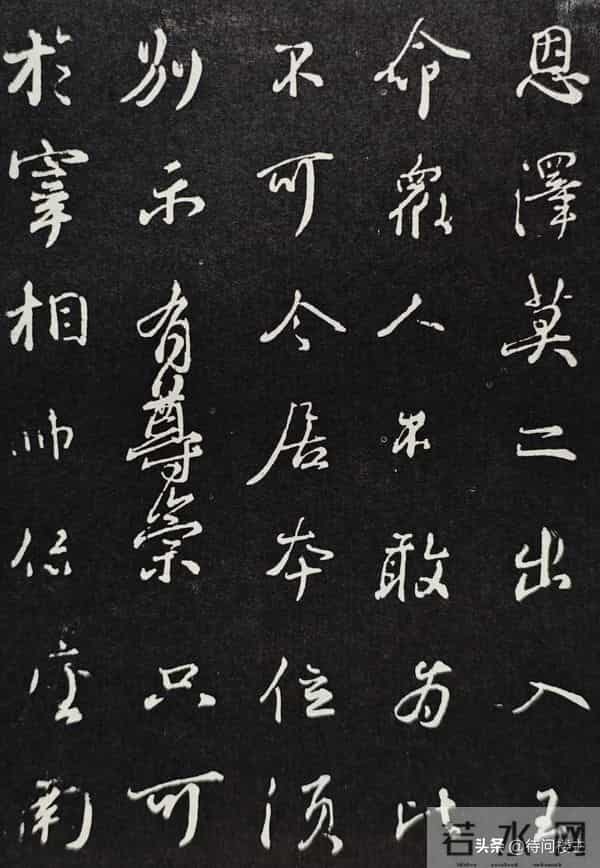 恩澤莫二出入王
命衆人不敢為比
不可令居本位須
別示有尊崇只可
於宰相師保座南
若水网
头条 @待问楼主